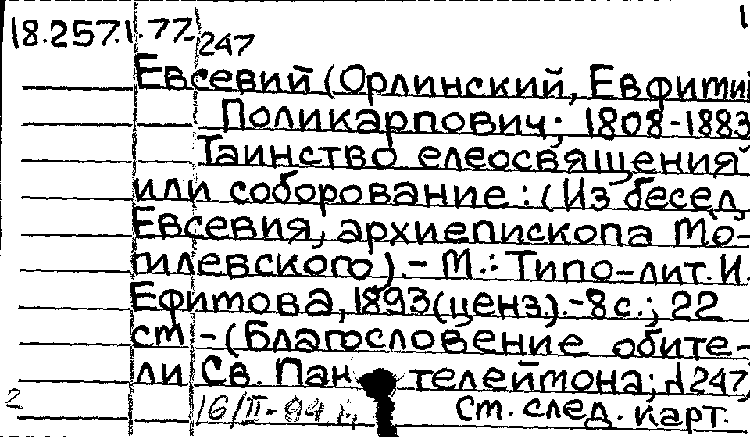 18.257.1.77-247
1
Евсевий (Орлинский, Евфимий
Поликарпович; 1808-1883
Таинство елеосвящения
или соборование: (Из бесед
Евсевия, архиепископа Мо-
гилевского).- М.: Типо-лит. И.
Ефимова, 1893(ценз).-8с.; 22
см -(Благословение обите-
ли Св. Пантелеймона;
2
ст. след. карт.